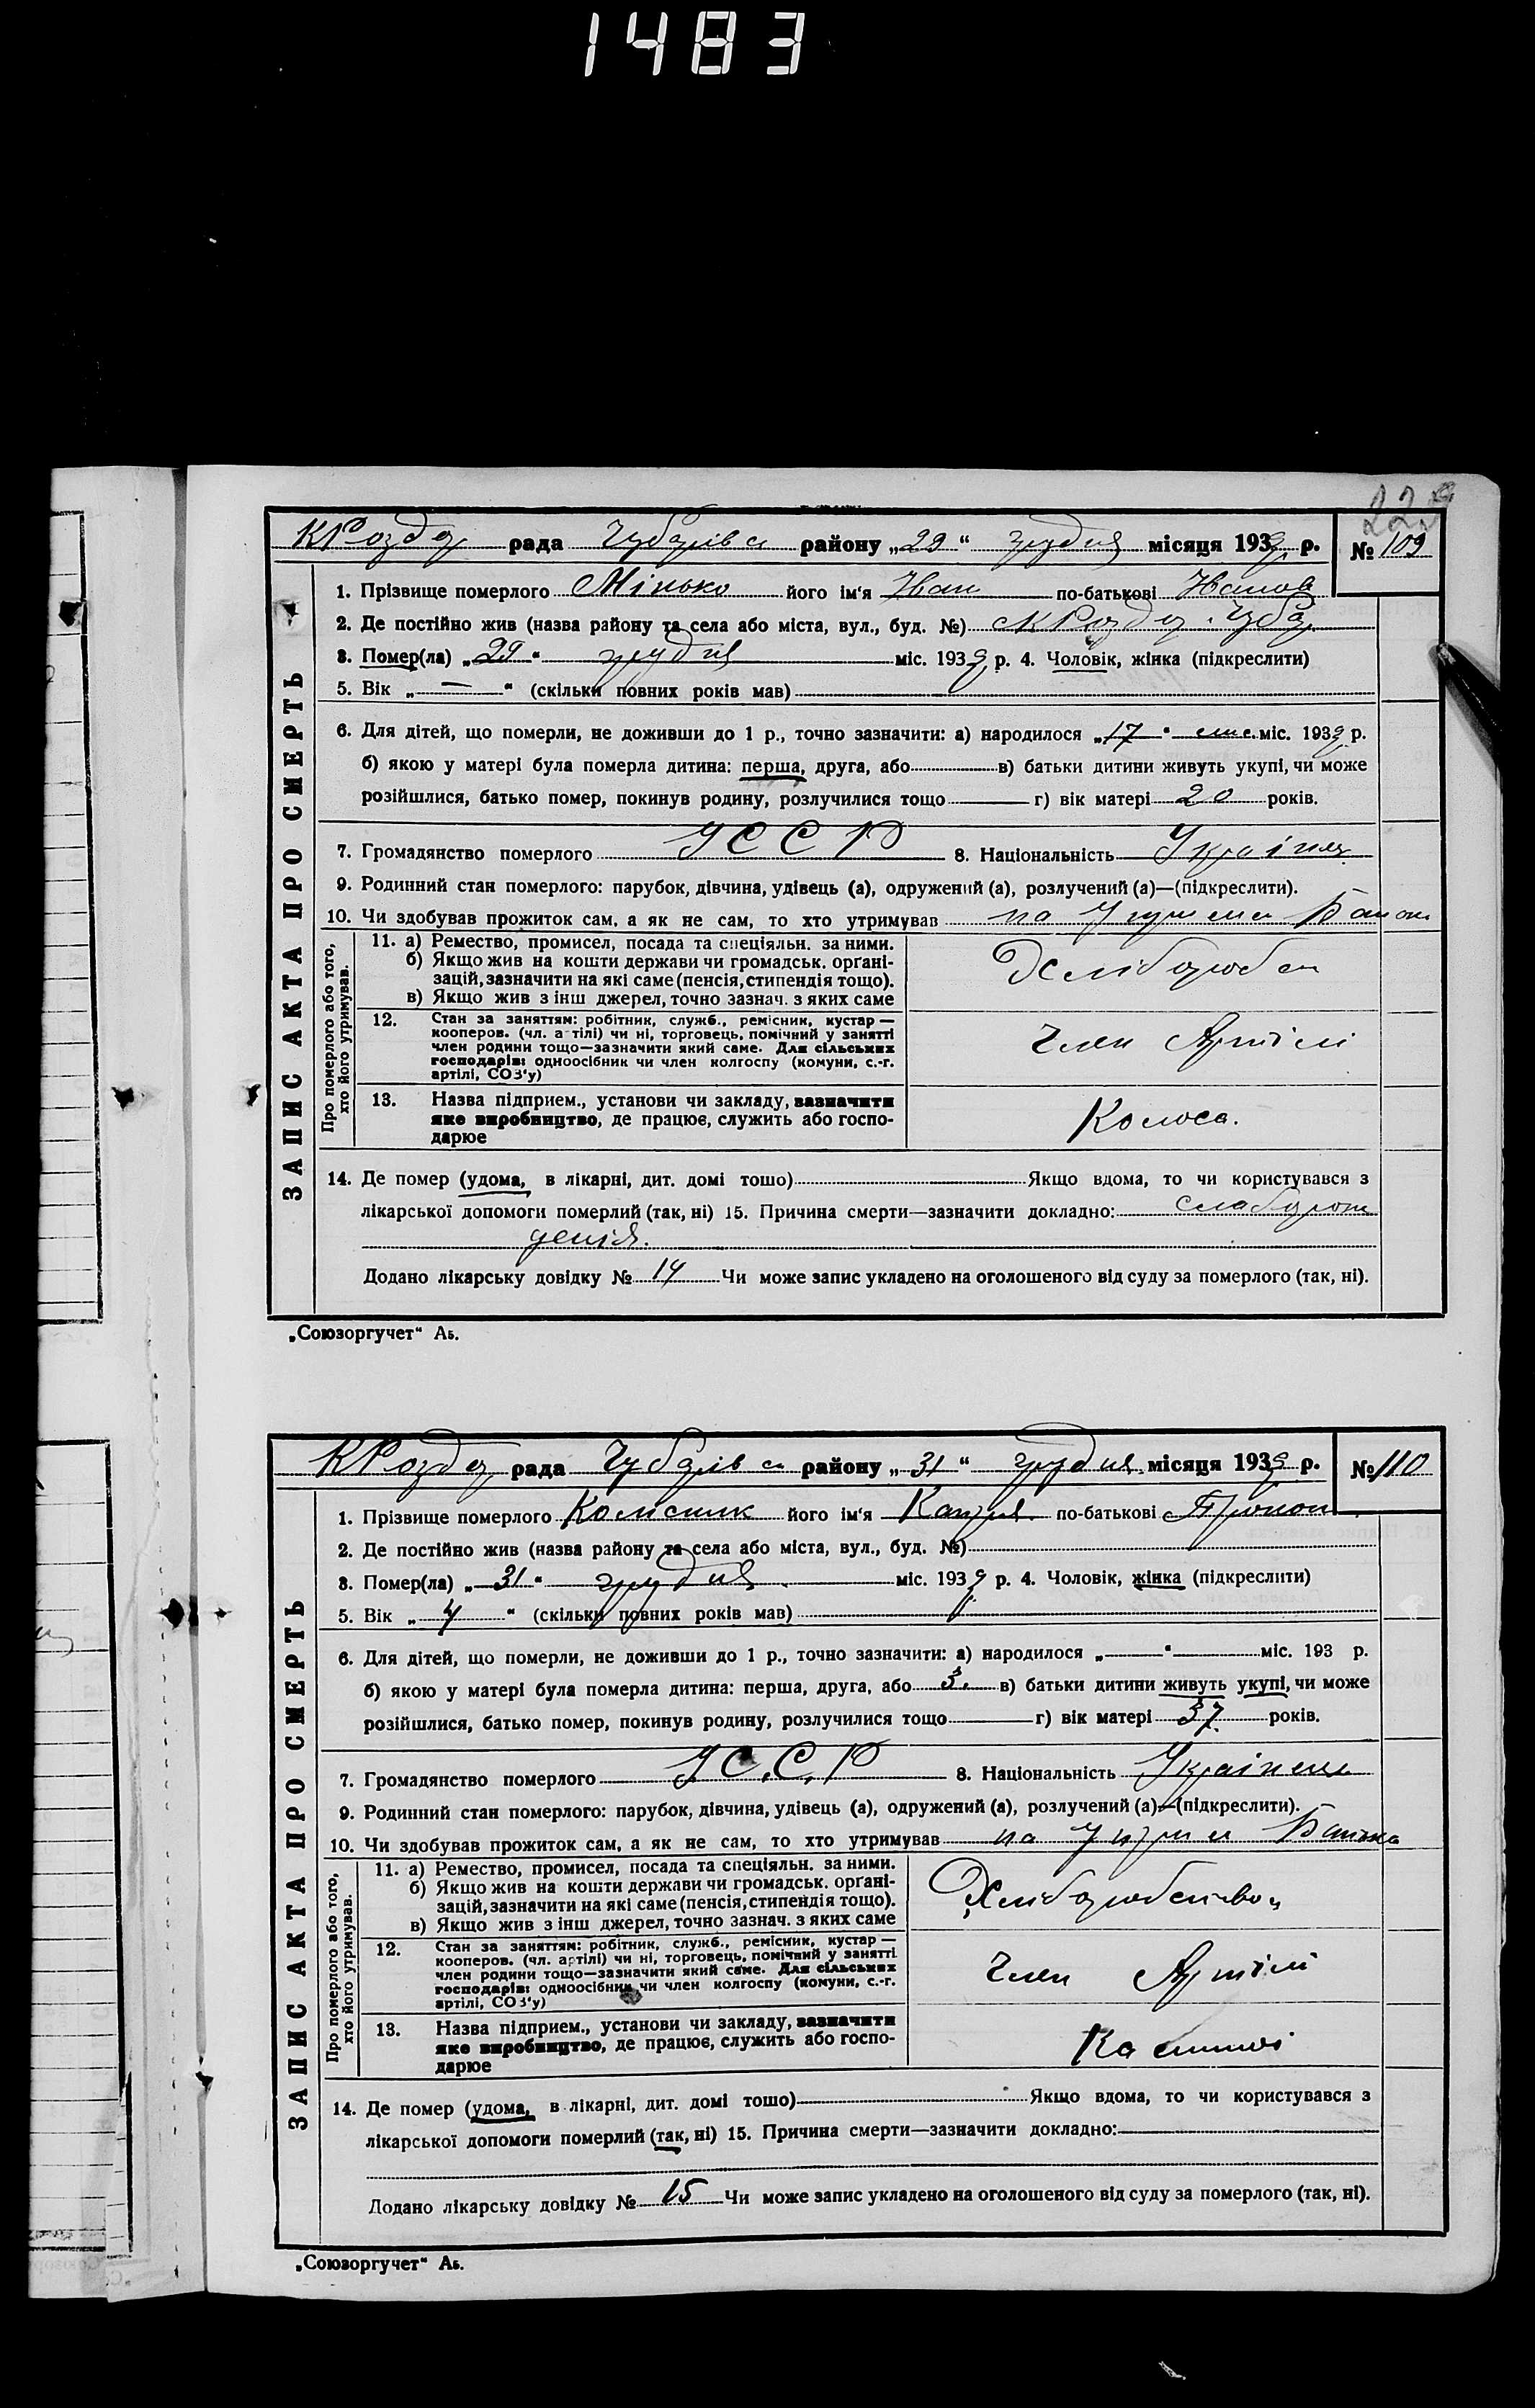 1483
229
КРоздо рада Чубарівс району „29“ грудня місяця 1933 р. № 109
1. Прізвище померлого Мінько його ім‘я Иван по-батькові Иванов
2. Де постійно жив (назва району та села або міста, вул., буд. №) КРоздо Чуба
3. Помер(ла) „29“ грудня міс. 1933 р. 4. Чоловік, жінка (підкреслити)
5. Вік „—“ (скільки повних років мав)
6. Для дітей, що померли, не доживши до 1 р., точно зазначити: а) народилося „17“ міс. 1933 р.
б) якою у матері була померла дитина: перша, друга, або — в) батьки дитини живуть укупі, чи може
розійшлися, батько помер, покинув родину, розлучилися тощо — г) вік матері 20 років.
7. Громадянство померлого УССР 8. Національність Україн
9. Родинний стан померлого: парубок, дівчина, удівець (а), одружений (а), розлучений (а)—(підкреслити).
10. Чи здобував прожиток сам, а як не сам, то хто утримував на Утрим Батьк
ЗАПИС АКТА ПРО СМЕРТЬ
Про померлого або того, хто його утримував.
11. а) Ремество, промисел, посада та спеціяльн. за ними.
б) Якщо жив на кошти держави чи громадськ. орґані-
зацій, зазначити на які саме (пенсія, стипендія тощо).
в) Якщо жив з інш джерел, точно зазнач. з яких саме
Хлібороб
12. Стан за заняттям: робітник, служб., ремісник, кустар—
кооперов. (чл. артілі) чи ні, торговець, помічний у занятті
член родини тощо—зазначити який саме. Для сільських
господарів: одноосібник чи член колгоспу (комуни, с.-г.
артілі, СОЗ‘у)
Член Артілі
13. Назва підприєм., установи чи закладу, зазначити
яке виробництво, де працює, служить або госпо-
дарює
Колоса.
14. Де помер (удома, в лікарні, дит. домі тошо) Якщо вдома, то чи користувався з
лікарської допомоги померлий (так, ні) 15. Причина смерти—зазначити докладно: слаборож
денія.
Додано лікарську довідку № 14 Чи може запис укладено на оголошеного від суду за померлого (так, ні).
„Союзоргучет“ Аь.
КРоздо рада Чубарівс району „31“ грудня місяця 1933 р. № 110
1. Прізвище померлого Колісник його ім‘я Катря по-батькові Прокоп
2. Де постійно жив (назва району та села або міста, вул., буд. №)
3. Помер(ла) „31“ грудня міс. 1933 р. 4. Чоловік, жінка (підкреслити)
5. Вік „4“ (скільки повних років мав)
6. Для дітей, що померли, не доживши до 1 р., точно зазначити: а) народилося „—“ міс. 193 р.
б) якою у матері була померла дитина: перша, друга, або 3. в) батьки дитини живуть укупі, чи може
розійшлися, батько помер, покинув родину, розлучилися тощо — г) вік матері 37 років.
7. Громадянство померлого У.С.С.Р 8. Національність Українец
9. Родинний стан померлого: парубок, дівчина, удівець (а), одружений (а), розлучений (а)—(підкреслити).
10. Чи здобував прожиток сам, а як не сам, то хто утримував на Утрим Батька
ЗАПИС АКТА ПРО СМЕРТЬ
Про померлого або того, хто його утримував.
11. а) Ремество, промисел, посада та спеціяльн. за ними.
б) Якщо жив на кошти держави чи громадськ. орґані-
зацій, зазначити на які саме (пенсія, стипендія тощо).
в) Якщо жив з інш джерел, точно зазнач. з яких саме
Хліборобство
12. Стан за заняттям: робітник, служб., ремісник, кустар—
кооперов. (чл. артілі) чи ні, торговець, помічний у занятті
член родини тощо—зазначити який саме. Для сільських
господарів: одноосібник чи член колгоспу (комуни, с.-г.
артілі, СОЗ‘у)
Член Артілі
13. Назва підприєм., установи чи закладу, зазначити
яке виробництво, де працює, служить або госпо-
дарює
14. Де помер (удома, в лікарні, дит. домі тошо) Якщо вдома, то чи користувався з
лікарської допомоги померлий (так, ні) 15. Причина смерти—зазначити докладно:
Додано лікарську довідку № 15 Чи може запис укладено на оголошеного від суду за померлого (так, ні).
„Союзоргучет“ Аь.